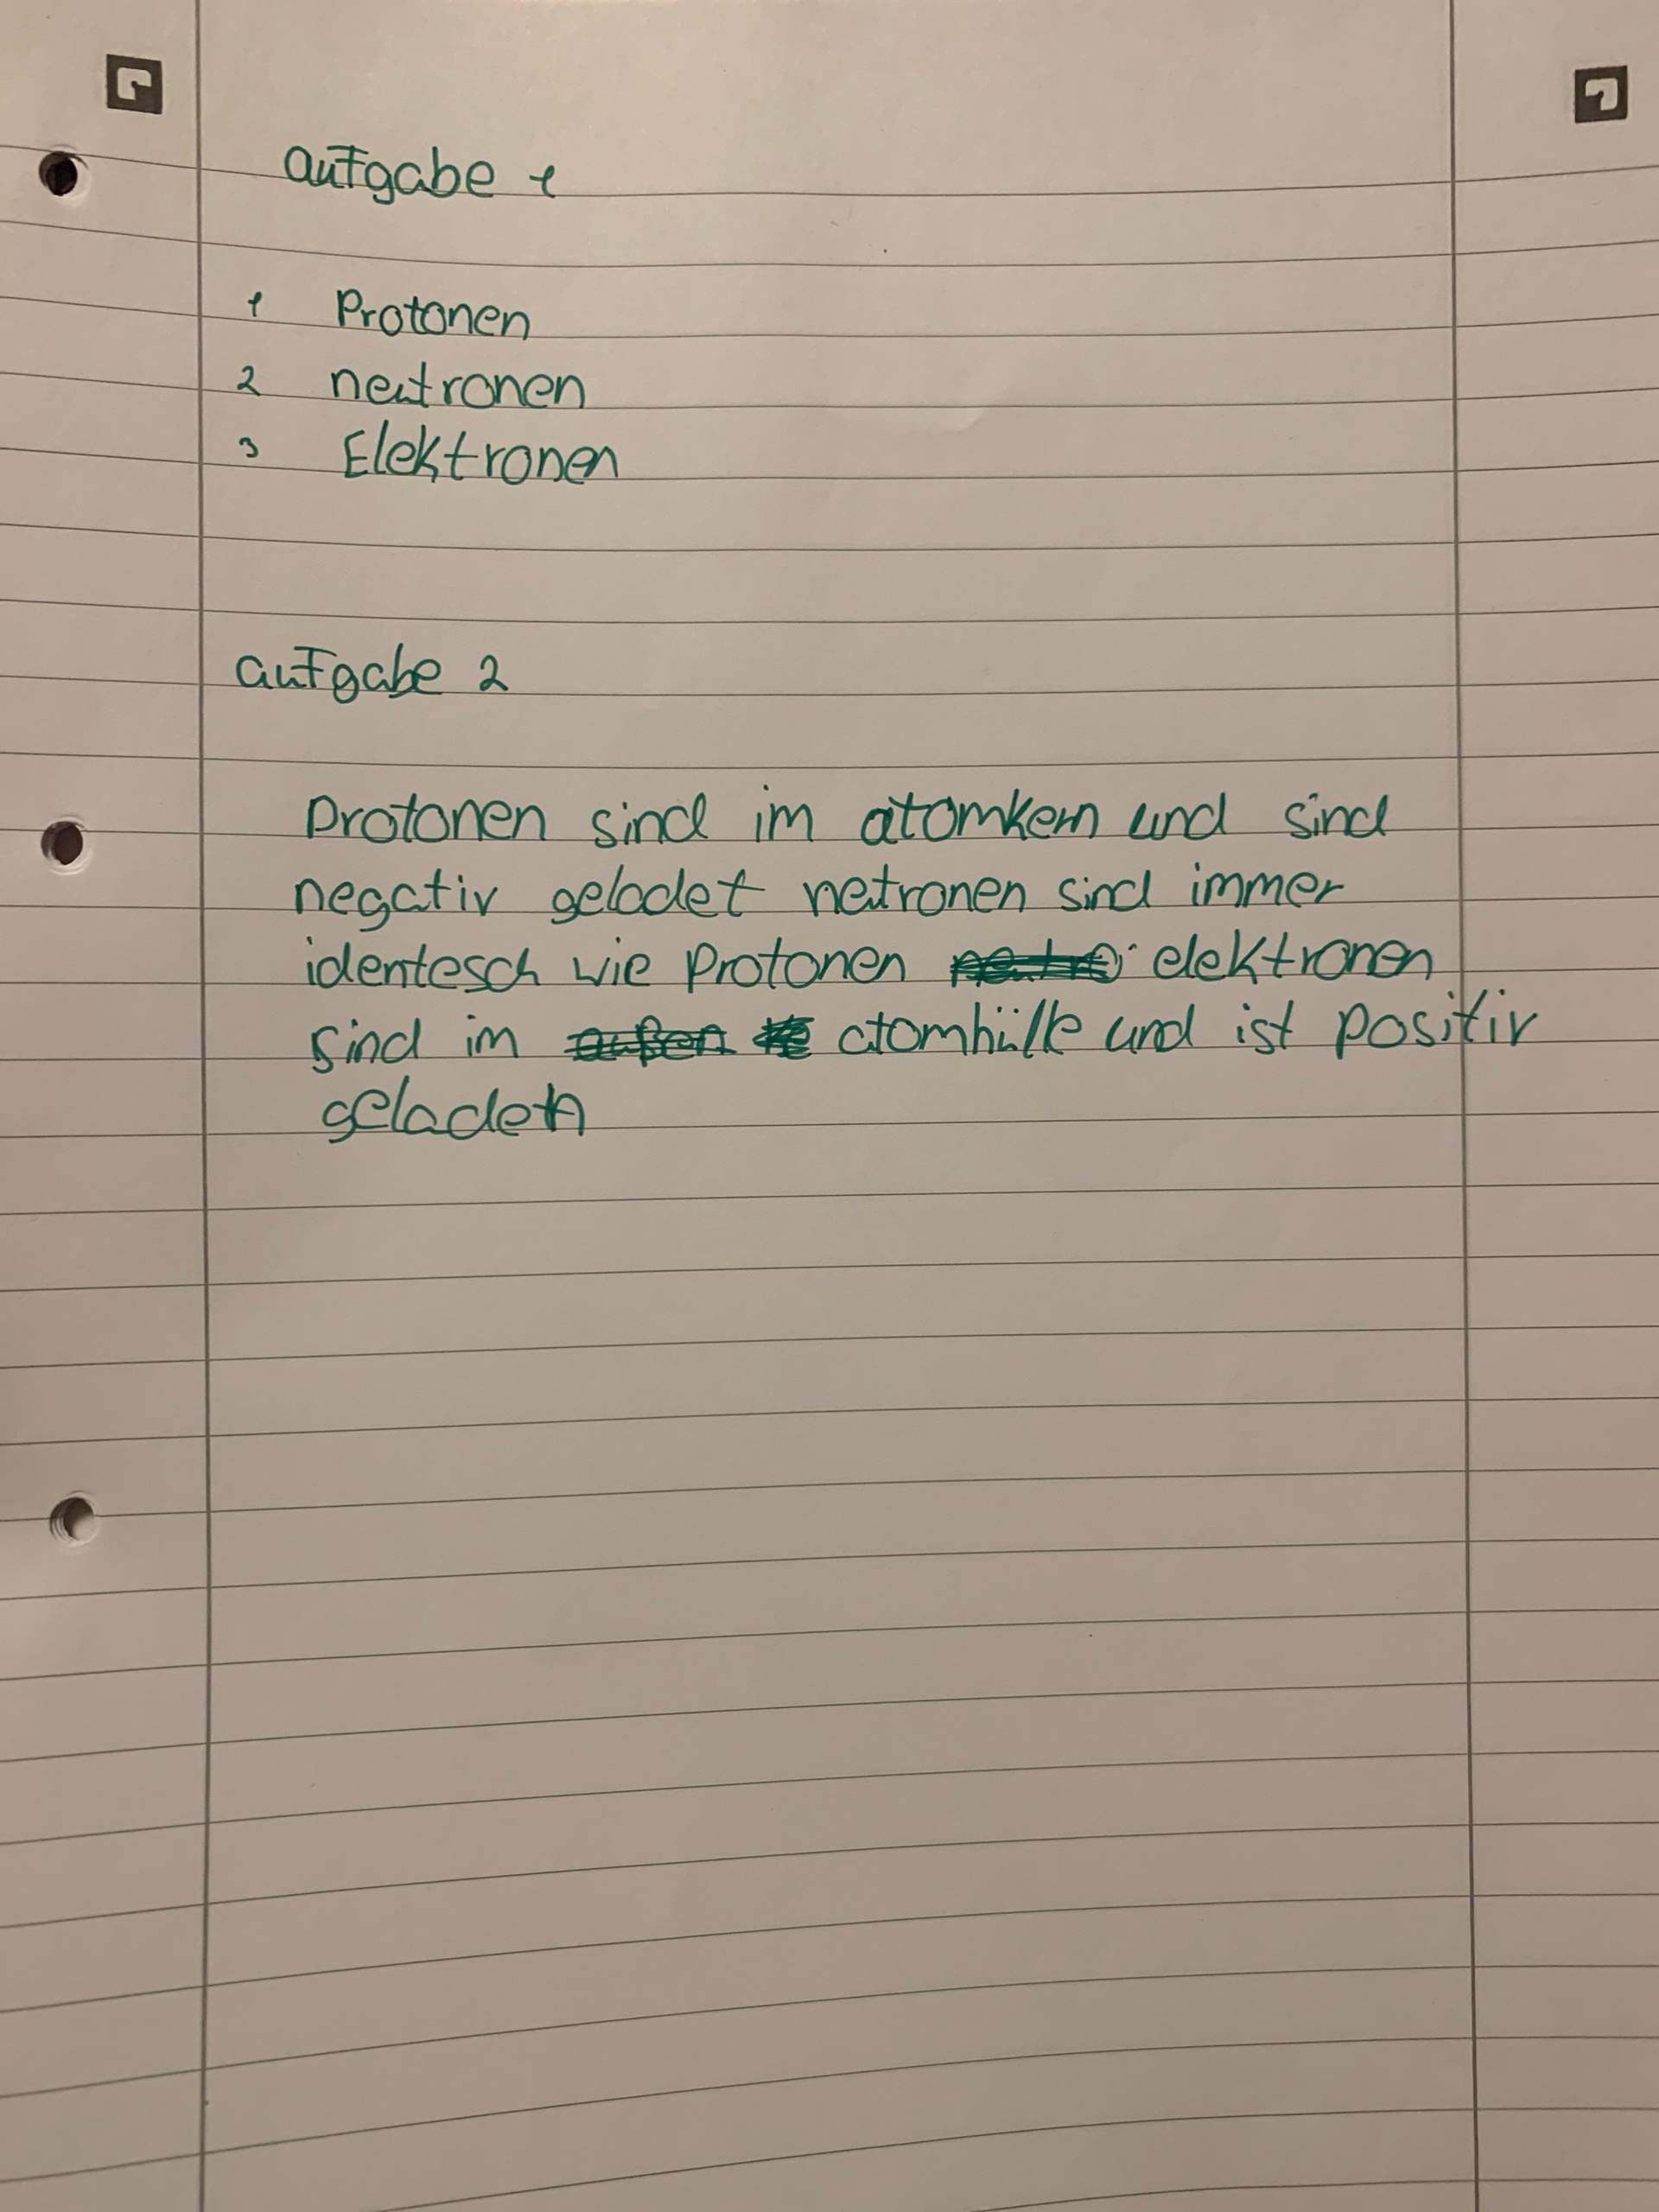 aufgabe 1
1 Protonen
2 neutronen
3 Elektronen
aufgabe 2
Protonen sind im atomkern und sind
negativ geladet neutronen sind immer
identesch wie Protonen elektronen
sind im atomhülle und ist positiv
geladen